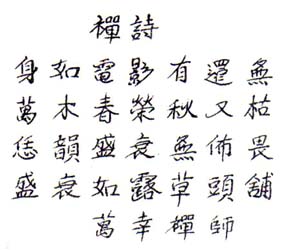 禪詩
身如電影有還無
萬木春榮秋又枯
恁韻盛衰無佈畏
盛衰如露草頭舖
萬幸禪師